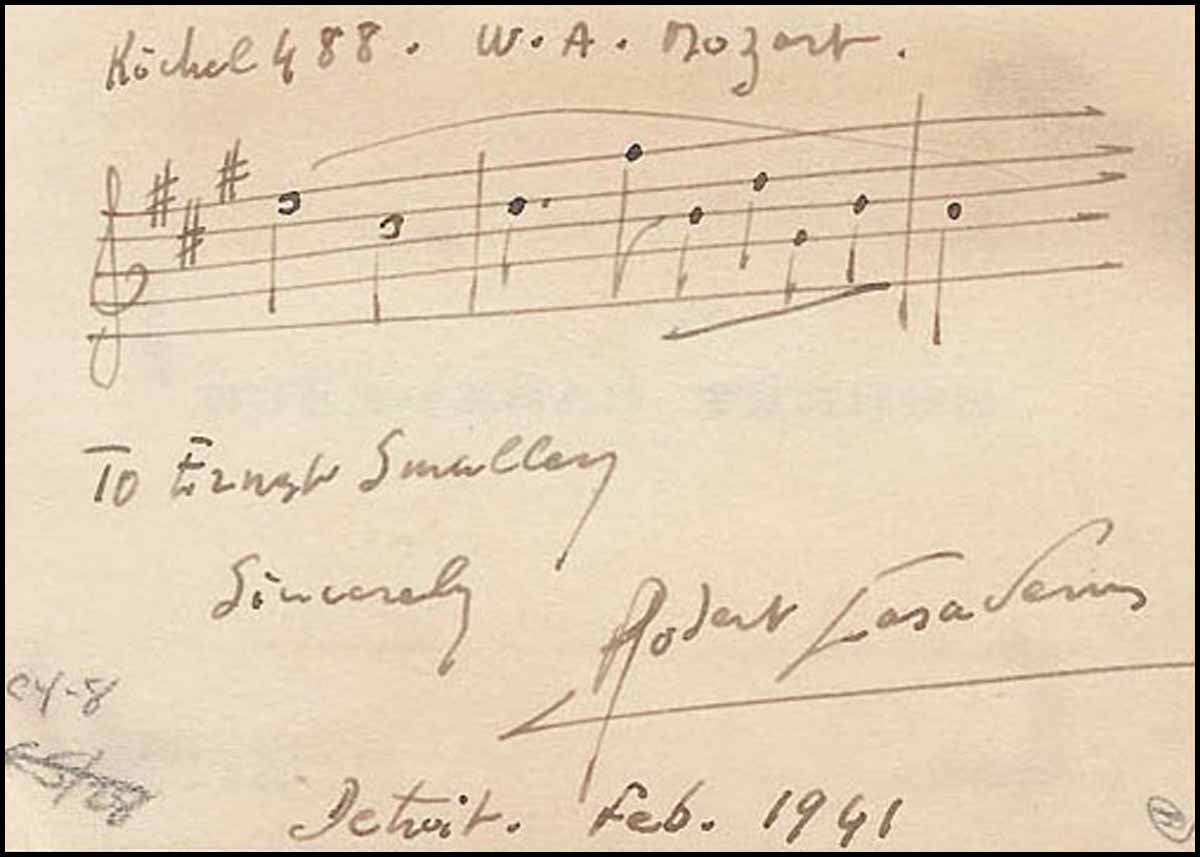 Köchel 488. W. A. Mozart.
To Ernest Smalley
Sincerely
Robert Casadesus
Detroit. Feb. 1941